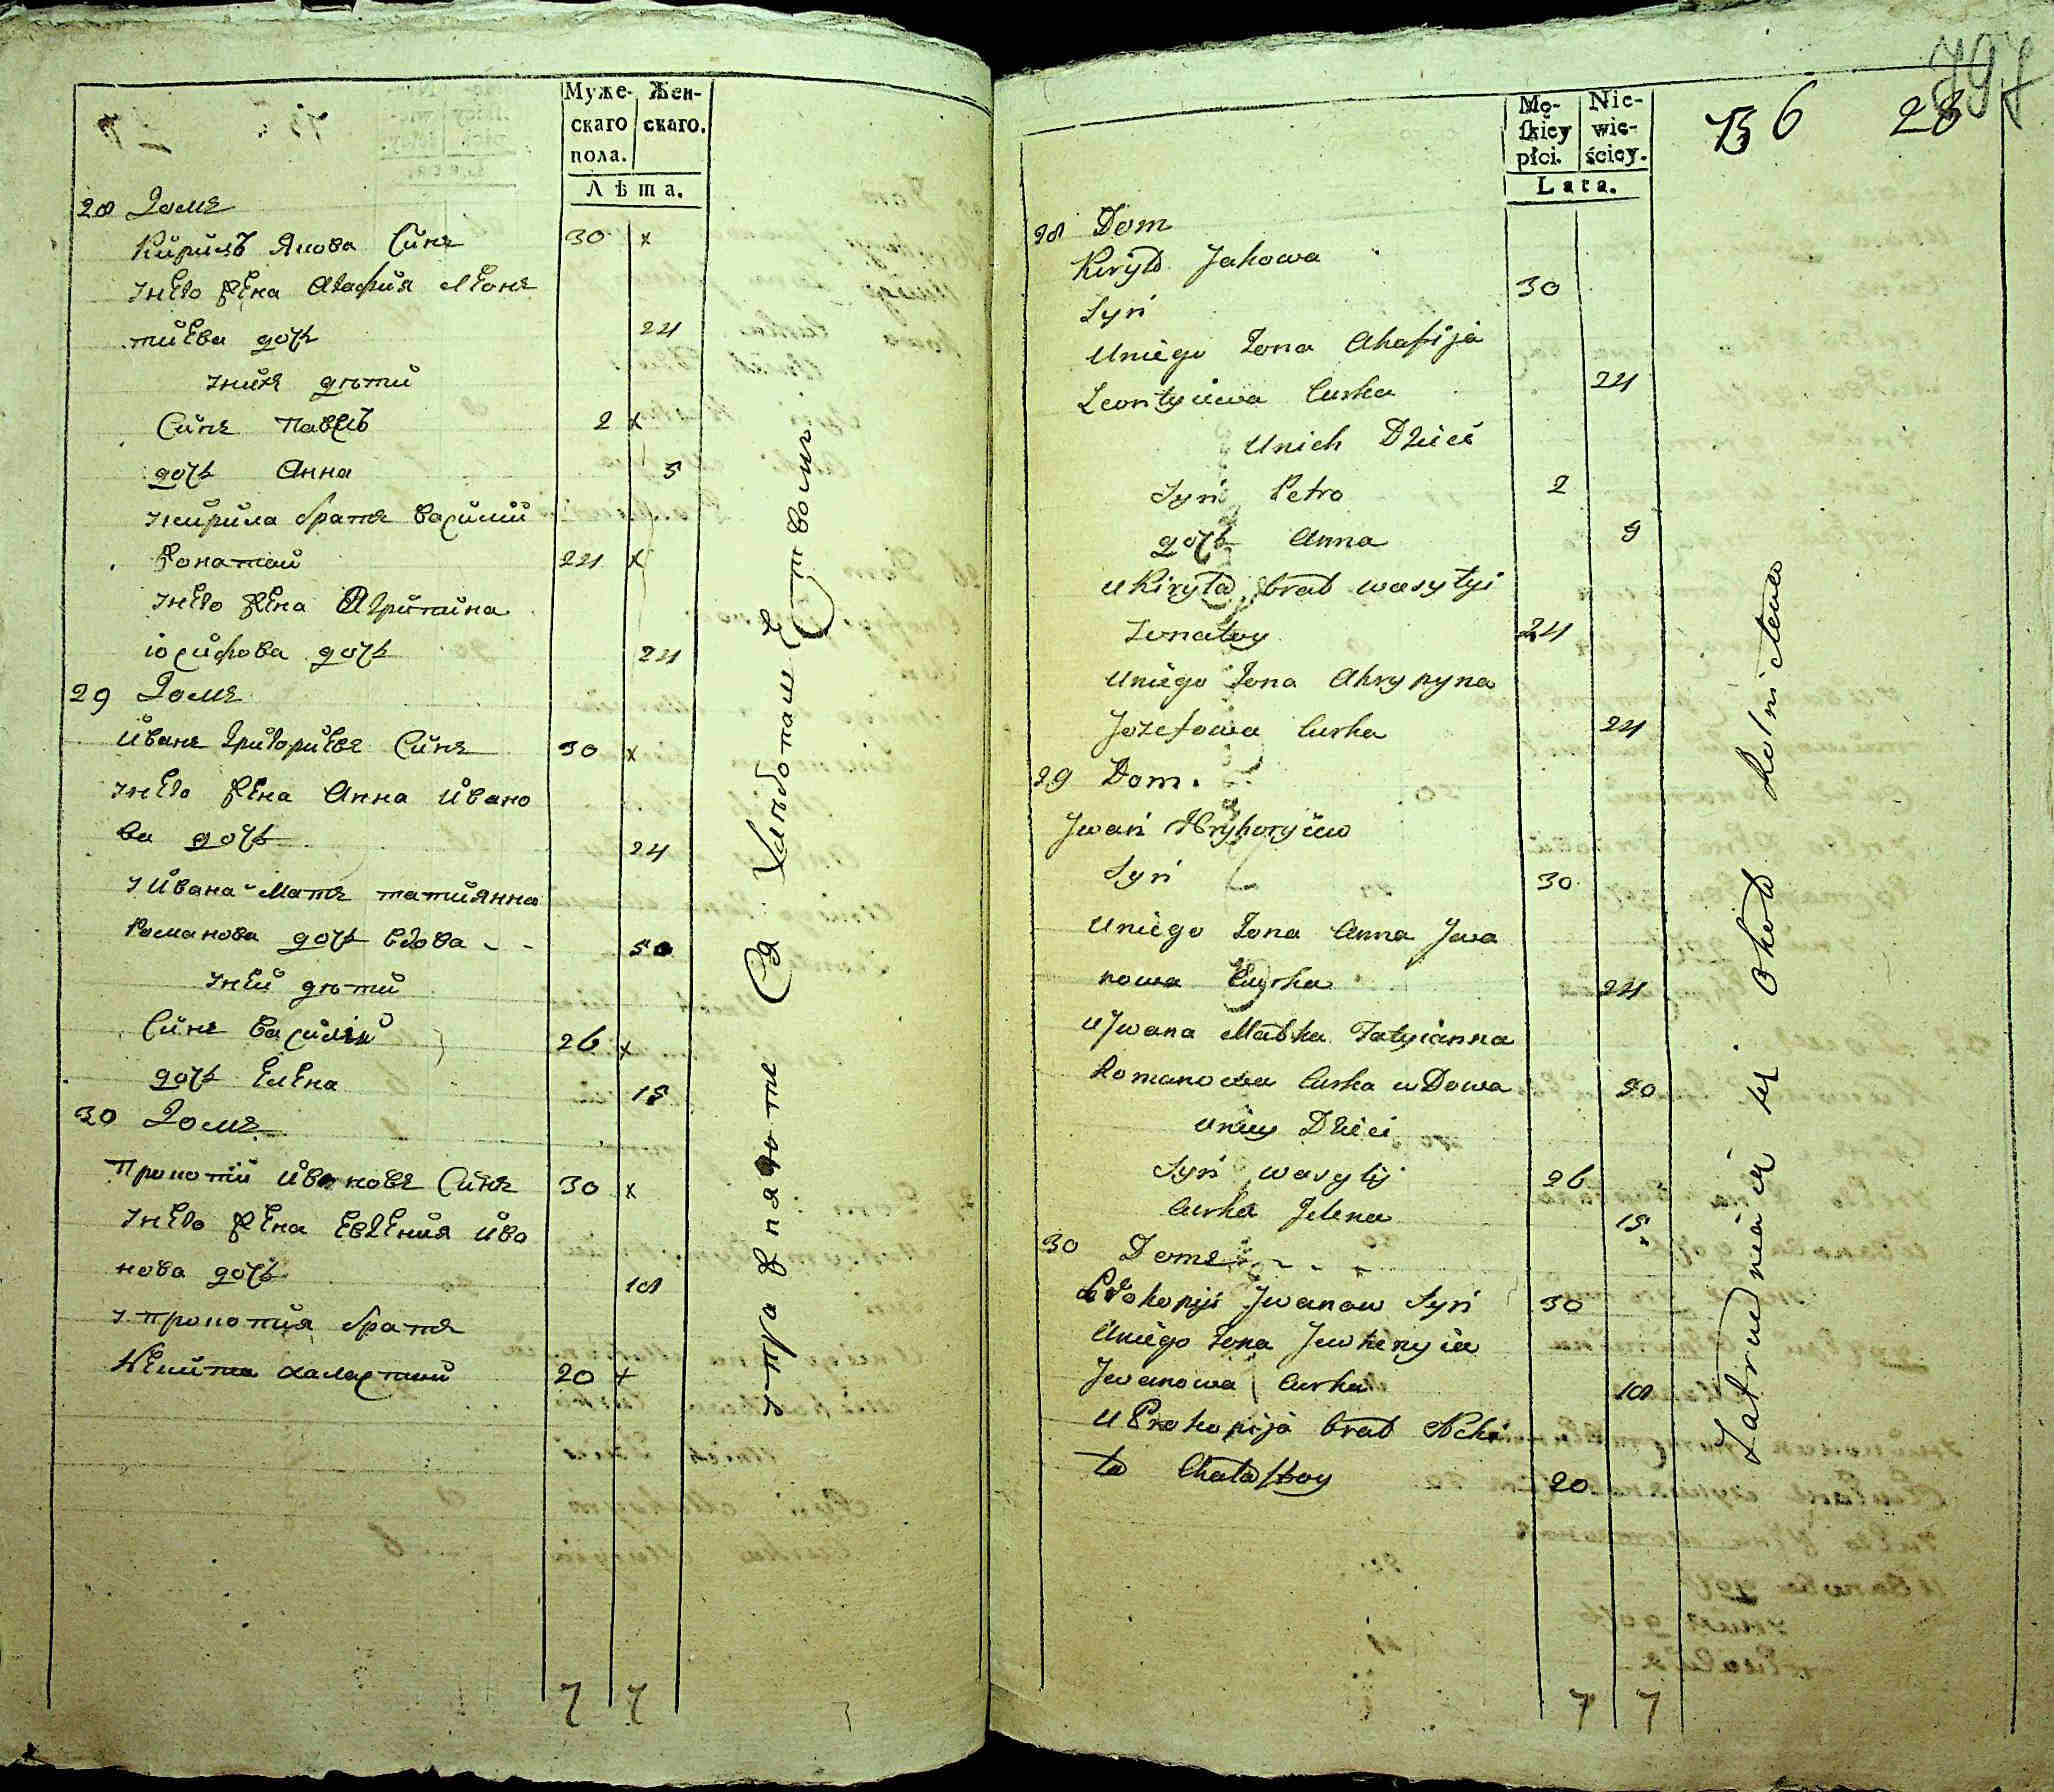 Муже-
скаго
пола.
Жен-
скаго.
Лѣта.
28 Домъ
Кирилъ Якова Синъ 30 x
унего жена Агафия Леон
тиева дочь 24
унихъ дѣти
Синъ павелъ 2 x
дочь Анна 5
укирила братъ василий
Жонатой 24 x
унего жена Агрипина
іосифова дочь 24
29 Домъ
иванъ григориевъ Синъ 30 x
унего жена Анна ивано
ва дочь 24
уивана Матъ татиянна
Романова дочь вдова - - 50
уней дѣти
Синъ василий 26 x
дочь Елена 15
30 Домъ
прокопий ивановъ Синъ 30 x
унего жена Евгения ива
нова дочь 18
упрокопия братъ
Никита халастий 20 x
7 7
упражняются Хлебопашеством
797
136 28
Mę-
ſkiey
płci.
Nie-
wie-
ściey.
Lata.
28 Dom
Kiryło Jakowa
Syn 30
Uniego Żona Ahafija
Leontyiewa Curka 24
Unich Dzieci
Syn Petro 2
дочь Anna 9
u Kiryła brat wasylyi
Żonatoy 24
Uniego Żona Ahrypyna
Jozefowa Curka 24
29 Dom.
Jwan Hryhoryiew
Syn 30
Uniego Żona Anna Jwa
nowa Curka 24
u Jwana Matka Tatyianna
Romanowa Curka uDowa 50
uniey Dzieci
Syn wasylij 26
Curka Jelena 15
30 Domъ - - -
Prokopiji Jwanow Syn 30
Uniego Żona Jewhenyia
Jwanowa Curka 18
u Prokopija brat Niki
ta Chałaſtoy 20
7 7
Zatrudniaią się około Rolnictwa